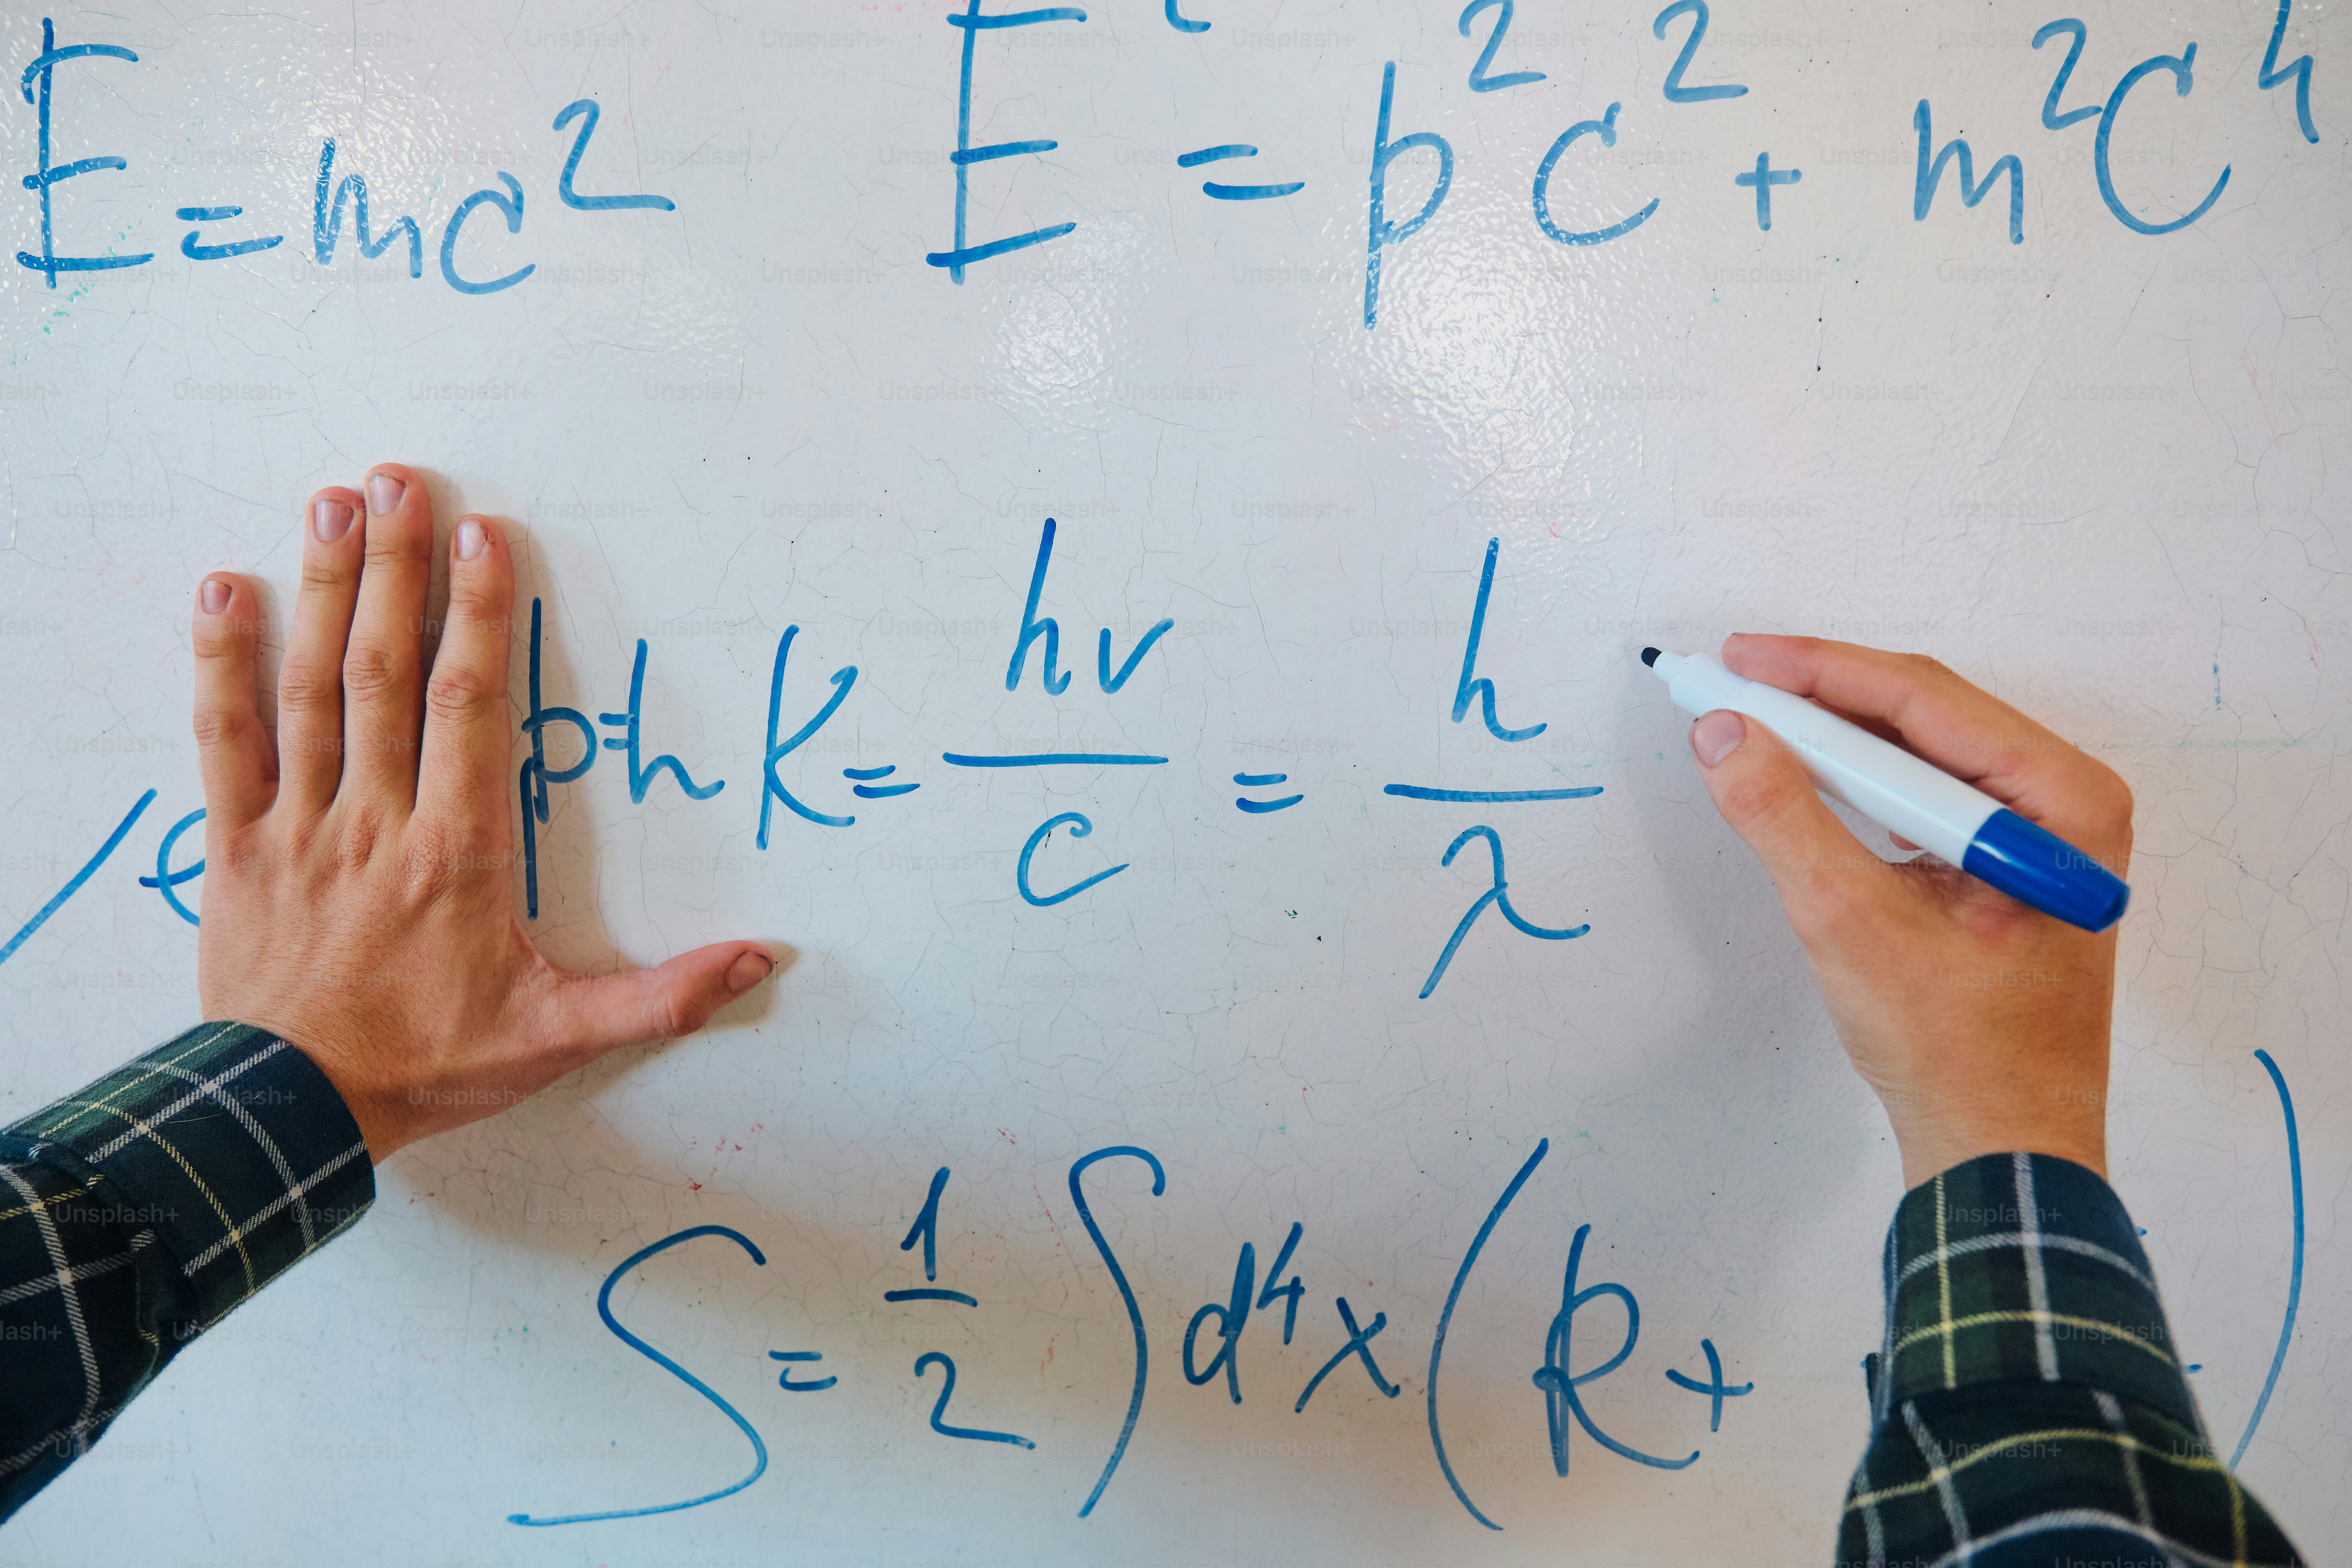 E = mc² E² = p²c² + m²c⁴
p = h k = hv/c = h/λ
S = 1/2 ∫ d⁴x ( R + )
Unsplash+